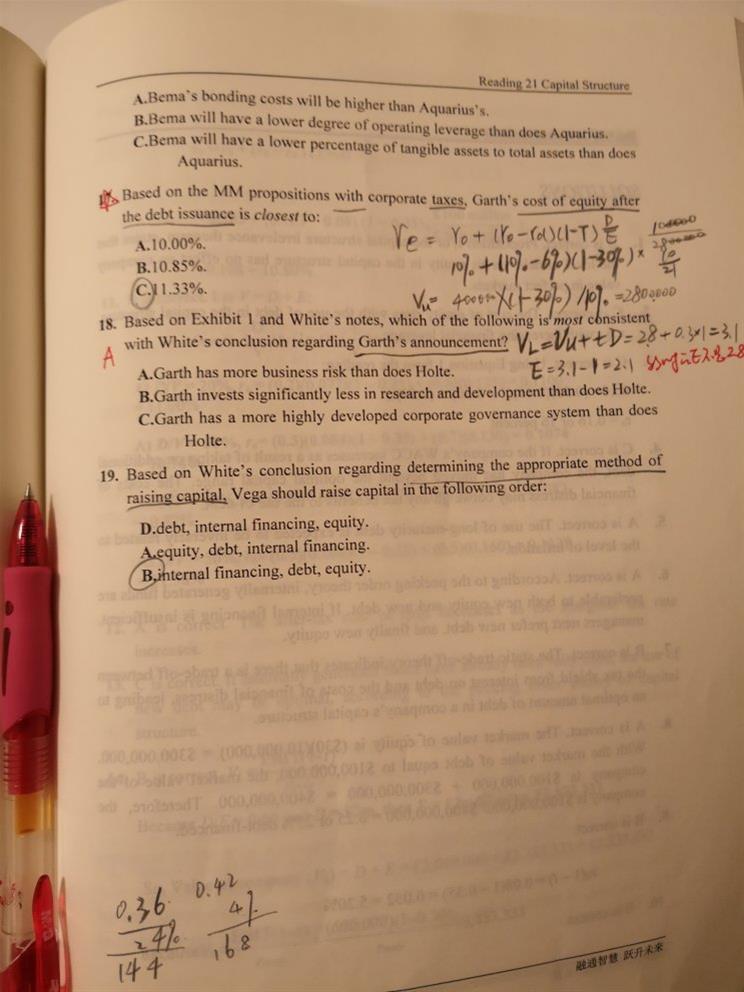 Reading 21 Capital Structure
A.Bema's bonding costs will be higher than Aquarius's.
B.Bema will have a lower degree of operating leverage than does Aquarius.
C.Bema will have a lower percentage of tangible assets to total assets than does
Aquarius.
17. Based on the MM propositions with corporate taxes, Garth's cost of equity after
the debt issuance is closest to:
A.10.00%.
B.10.85%.
C.11.33%.
re = r0 + (r0 - rd)(1-T) D/E
10% + (10% - 6%)(1-30%) × 10/21
Vu = 400000×(1-30%)/10% = 2800000
18. Based on Exhibit 1 and White's notes, which of the following is most consistent
with White's conclusion regarding Garth's announcement?
VL = Vu + tD = 2.8 + 0.3×1 = 3.1
E = 3.1 - 1 = 2.1
A
A.Garth has more business risk than does Holte.
B.Garth invests significantly less in research and development than does Holte.
C.Garth has a more highly developed corporate governance system than does
Holte.
19. Based on White's conclusion regarding determining the appropriate method of
raising capital, Vega should raise capital in the following order:
D.debt, internal financing, equity.
A.equity, debt, internal financing.
B.internal financing, debt, equity.
0.36
24%
144
0.42
4%
168
融通智慧 跃升未来